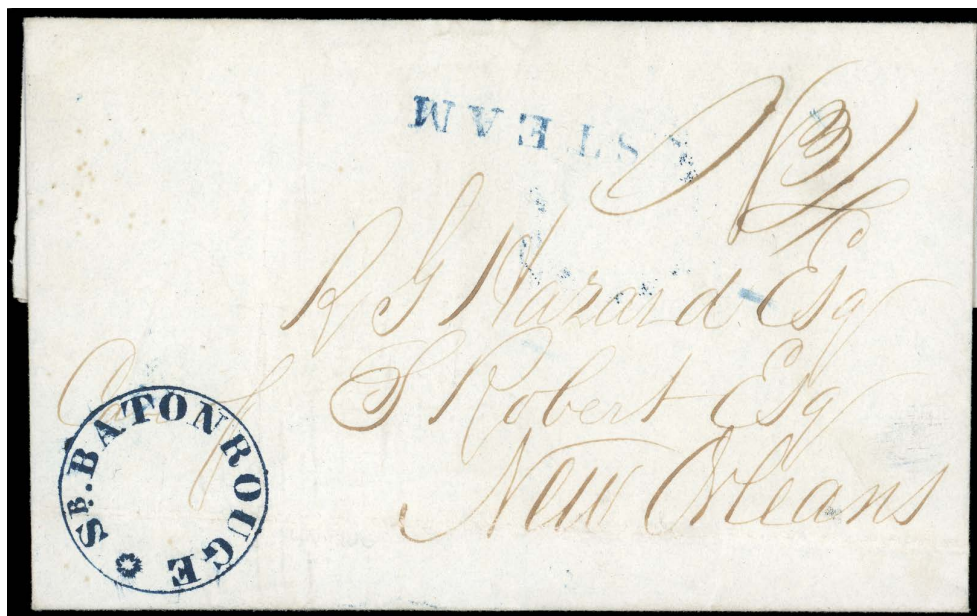 STEAM
R G Hazard Esq
Care of S Robert Esq
New Orleans
SB. BATON ROUGE